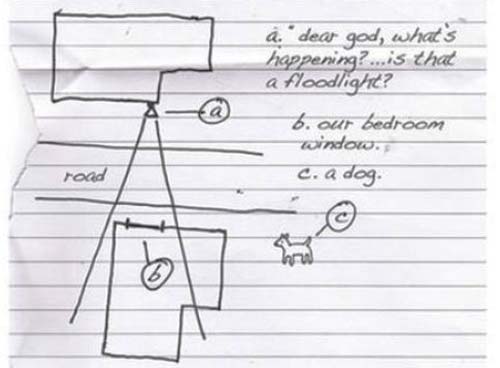 a. "dear god, what's
happening?...is that
a floodlight?
a
b. our bedroom
window.
road
c. a dog.
c
b